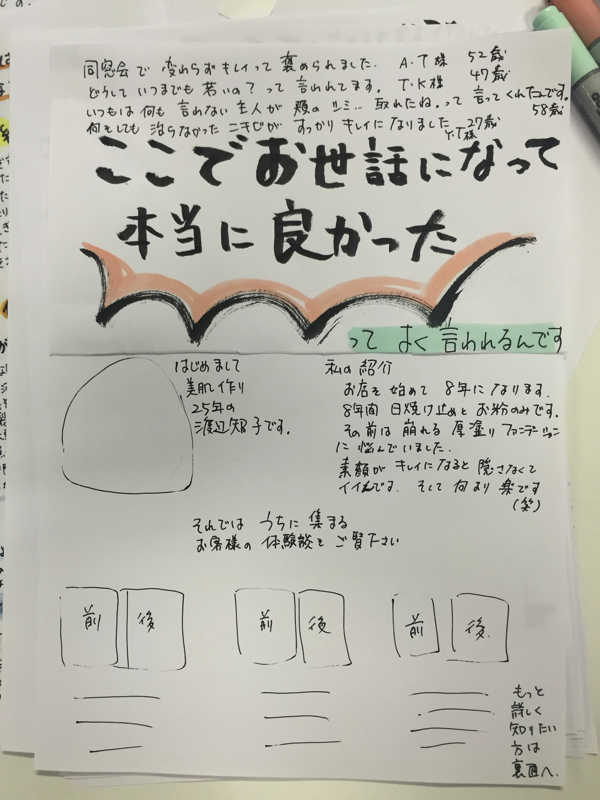 同窓会で変わらずキレイって褒められました. A.T様 52歳
どうしていつまでも若いの？って言われてます. T.K様 47歳
いつもは何も言れない主人が頬のシミ… 取れたね. って言ってくれたんです. 58歳
何をしても治らなかったニキビがすっかりキレイになりました Y.T様 27歳
ここでお世話になって
本当に良かった
って よく言われるんです
はじめまして
美肌作り
25年の
渡辺智子です.
私の紹介
お店を始めて8年になります.
8年間 日焼け止めとお粉のみです.
その前は崩れる厚塗りファンデーション
に悩んでいました.
素顔がキレイになると隠さなくて
イイんです. そして何より楽です
(笑)
それでは うちに集まる
お客様の体験談をご覧下さい
前 後
前 後
前 後
もっと
詳しく
知りたい
方は
裏面へ.